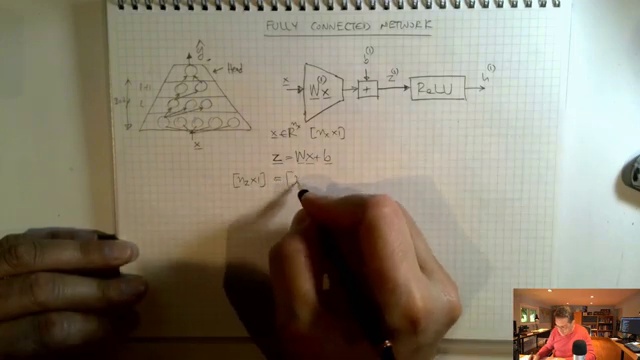 FULLY CONNECTED NETWORK
ŷ
Head
l+1
l
x
x
W x
(1)
b
(1)
+
z
(1)
ReLU
h
(1)
x ∈ R^{n_x} [n_x × 1]
z = Wx + b
[n_z × 1] = [